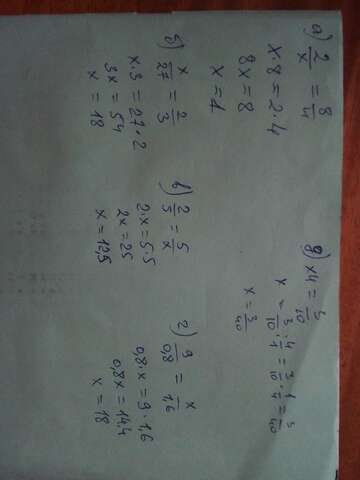 а) 2/x = 8/4
x·8=2·4
8x=8
x=1
б) x/27 = 2/3
x·3=27·2
3x=54
x=18
в) 2/5 = 5/x
2·x=5·5
2x=25
x=12,5
г) 9/0,8 = x/1,6
0,8·x=9·1,6
0,8x=14,4
x=18
д) x4 = 3/10
x = 3/10 : 4/1 = 3/10 · 1/4 = 3/40
x = 3/40